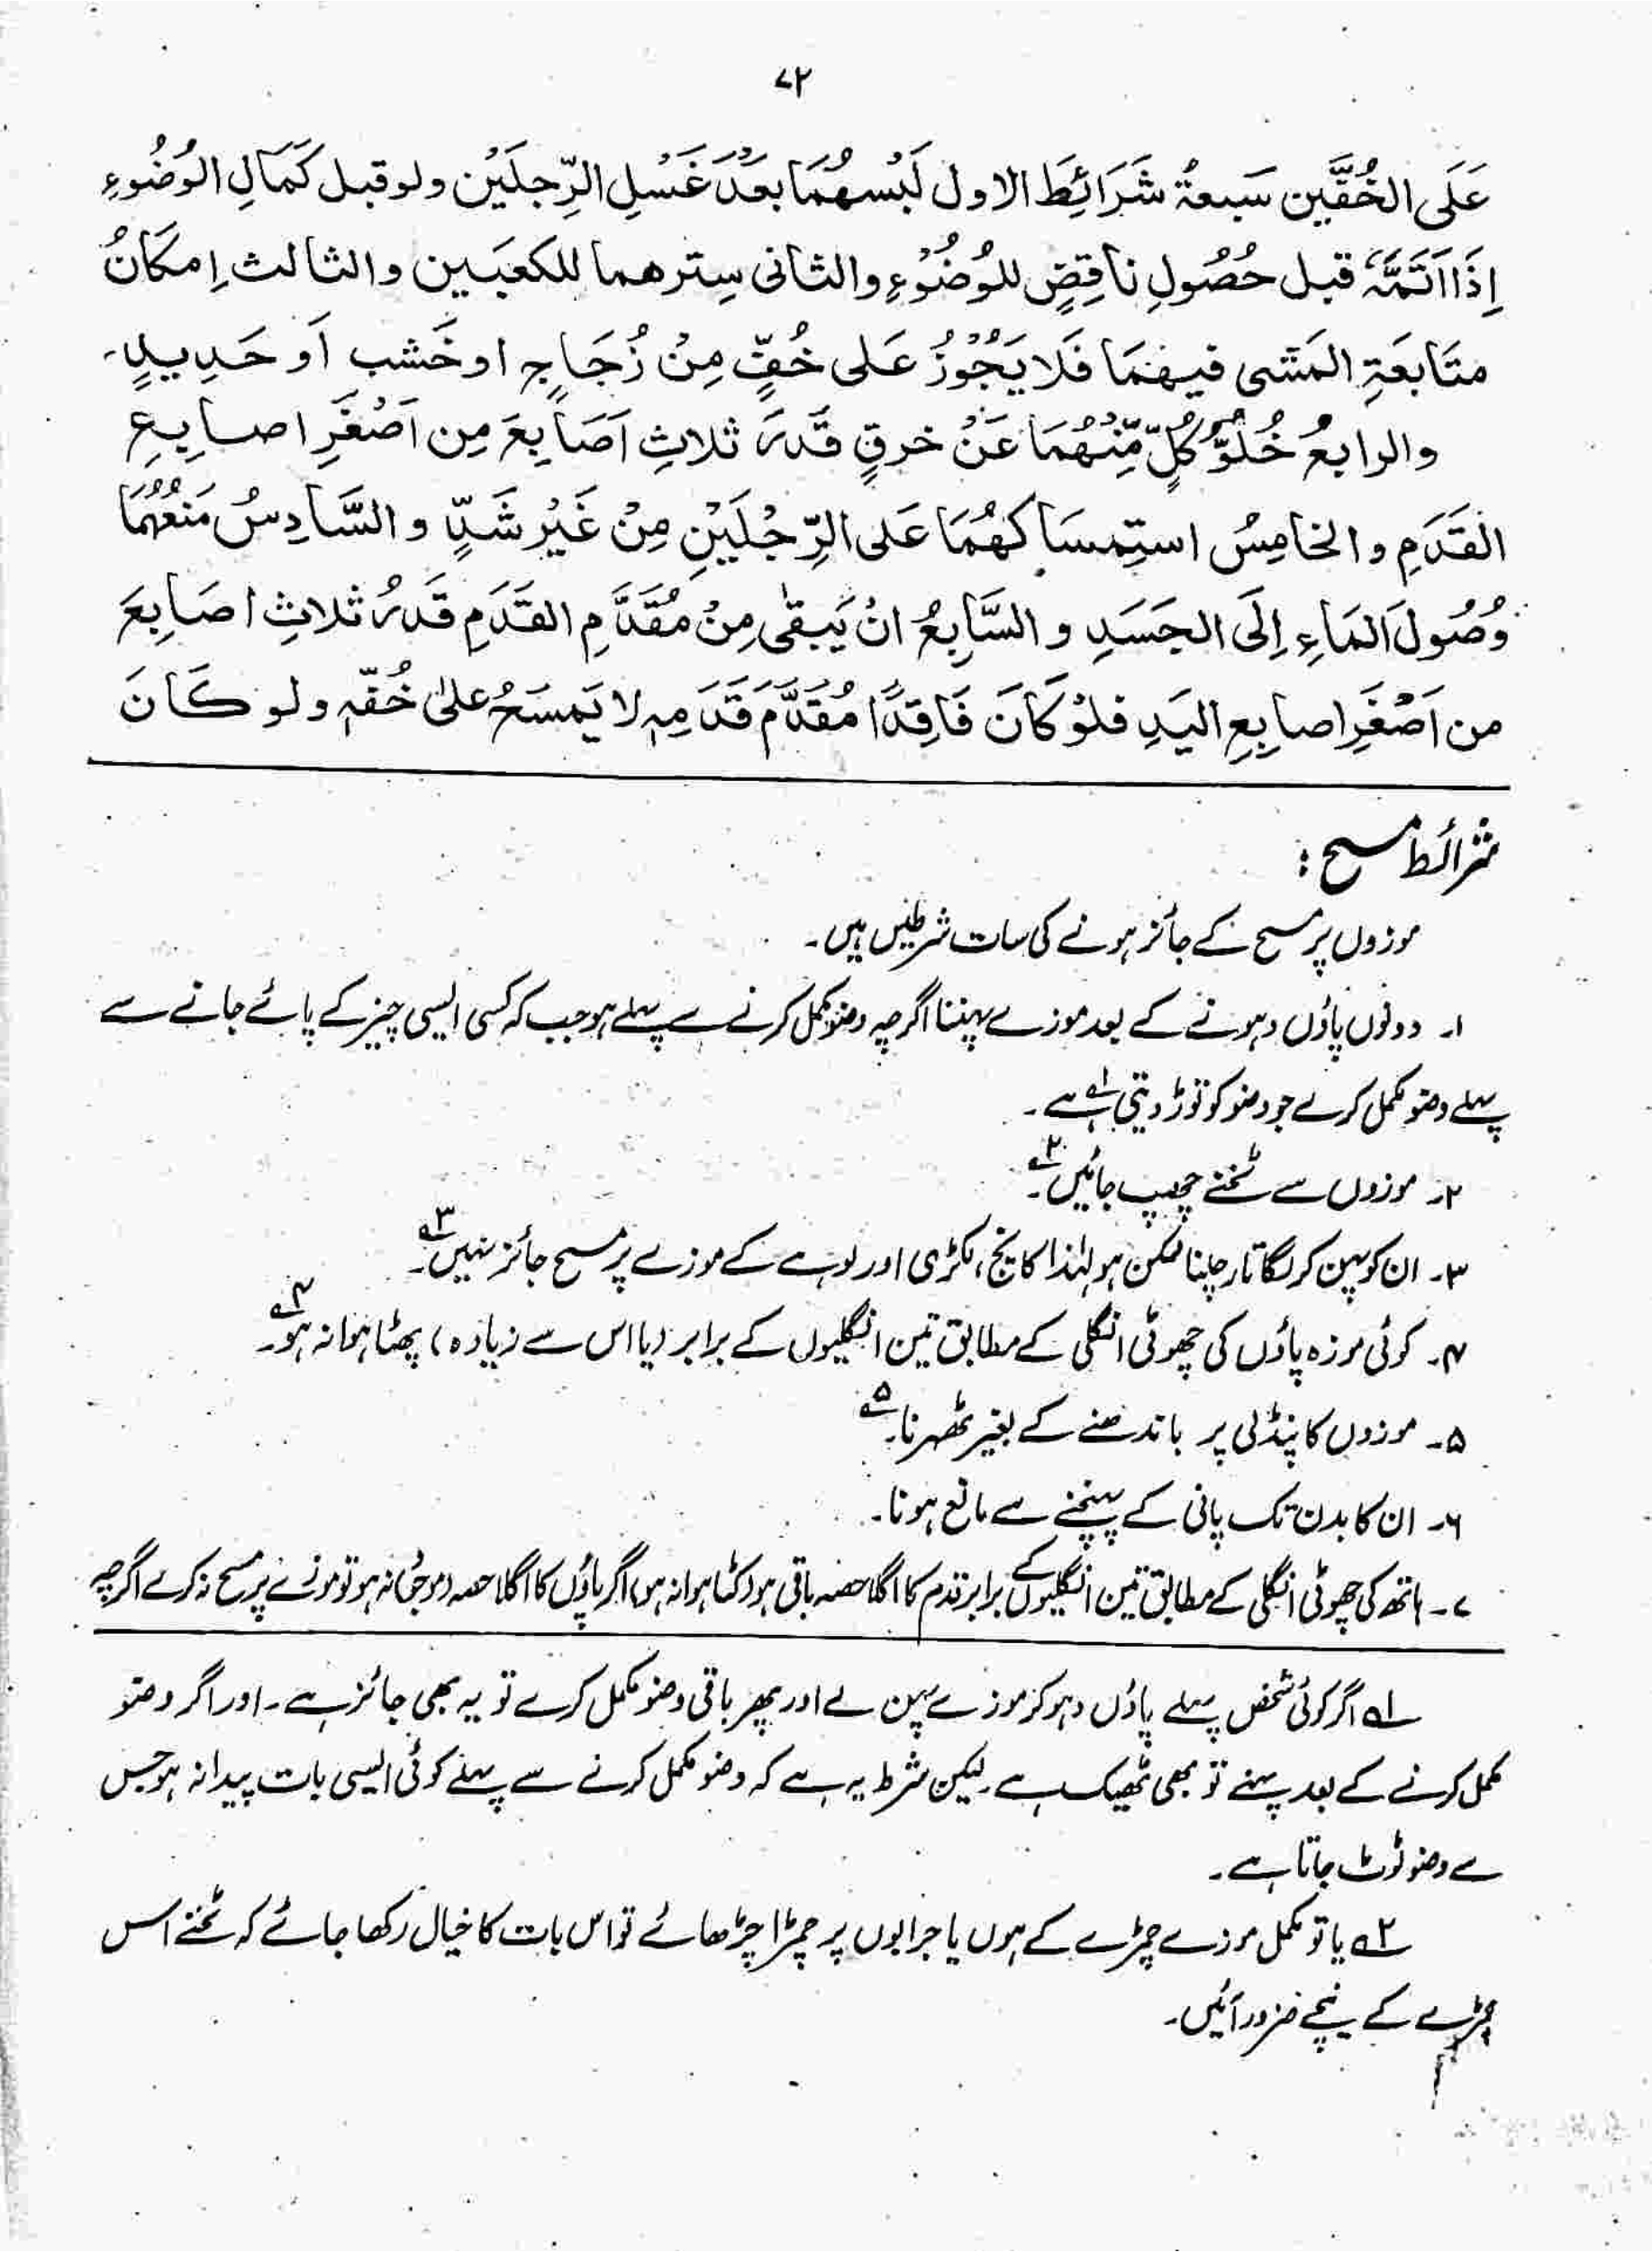 ۷۲
عَلَى الخُفَّين سَبعةُ شَرَائِطَ الاول لَبْسهُمَا بعَدْ غَسْلِ الرِّجلَيْن ولو قبل كَمَالِ الوُضُوءِ
اِذَا اَتَمَّهٗ قبل حُصُولِ ناقِضٍ للوُضُوْءِ والثانی سِترهما للكعبَين والثالث اِمكَانُ
متَابعَةِ المَشی فيهمَا فَلا يَجُوْزُ عَلی خُفٍّ مِنْ زُجَاجٍ او خَشب اَو حَدِيدٍ،
والرابعُ خُلُوُّ كُلٍّ مِّنْهُمَا عَنْ خرقٍ قَدرَ ثلاثِ اَصَابِعَ مِن اَصْغَرِ اصابِعِ
القَدَمِ والخامِسُ استِمسَاكهُمَا عَلی الرِّجْلَيْنِ مِنْ غَيْرِ شَدٍّ والسَّادِسُ مَنعُهُمَا
وُصُولَ المَاءِ اِلَی الجَسَدِ والسَّابِعُ انْ يَبقٰی مِنْ مُقَدَّمِ القَدَمِ قَدرُ ثلاثِ اصَابِعَ
من اَصْغَرِ اصابِعِ اليَدِ فلوْ كَانَ فَاقِدًا مُقَدَّمَ قَدَمِہٖ لا يَمسَحُ علیٰ خُفّہٖ ولو كَانَ
شرائط مسح :
موزوں پر مسح کے جائز ہونے کی سات شرطیں ہیں۔
۱۔ دونوں پاؤں دہونے کے بعد موزے پہننا اگرچہ وضو مکمل کرنے سے پہلے ہو جب کہ کسی ایسی چیز کے پائے جانے سے
پہلے وضو مکمل کرے جو وضو کو توڑ دیتی ہے۱؎۔
۲۔ موزوں سے ٹخنے چھپ جائیں۲؎۔
۳۔ ان کو پہن کر لگاتار چلنا ممکن ہو لہٰذا کانچ، لکڑی اور لوہے کے موزے پر مسح جائز نہیں۳؎۔
۴۔ کوئی موزہ پاؤں کی چھوٹی انگلی کے مطابق تین انگلیوں کے برابر (یا اس سے زیادہ) پھٹا ہوا نہ ہو۴؎۔
۵۔ موزوں کا پنڈلی پر باندھنے کے بغیر ٹھہرنا۵؎۔
۶۔ ان کا بدن تک پانی کے پہنچنے سے مانع ہونا۔
۷۔ ہاتھ کی چھوٹی انگلی کے مطابق تین انگلیوں کے برابر قدم کا اگلا حصہ باقی ہو (کٹا ہوا نہ ہو) اگر پاؤں کا اگلا حصہ موجود نہ ہو تو موزے پر مسح نہ کرے اگرچہ
۱؎ اگر کوئی شخص پہلے پاؤں دہو کر موزے پہن لے اور پھر باقی وضو مکمل کرے تو یہ بھی جائز ہے۔ اور اگر وضو
مکمل کرنے کے بعد پہنے تو بھی ٹھیک ہے۔ لیکن شرط یہ ہے کہ وضو مکمل کرنے سے پہلے کوئی ایسی بات پیدا نہ ہو جس
سے وضو ٹوٹ جاتا ہے۔
۲؎ یا تو مکمل موزے چمڑے کے ہوں یا جرابوں پر چمڑا چڑھائے تو اس بات کا خیال رکھا جائے کہ ٹخنے اس
چمڑے کے نیچے ضرور آئیں۔